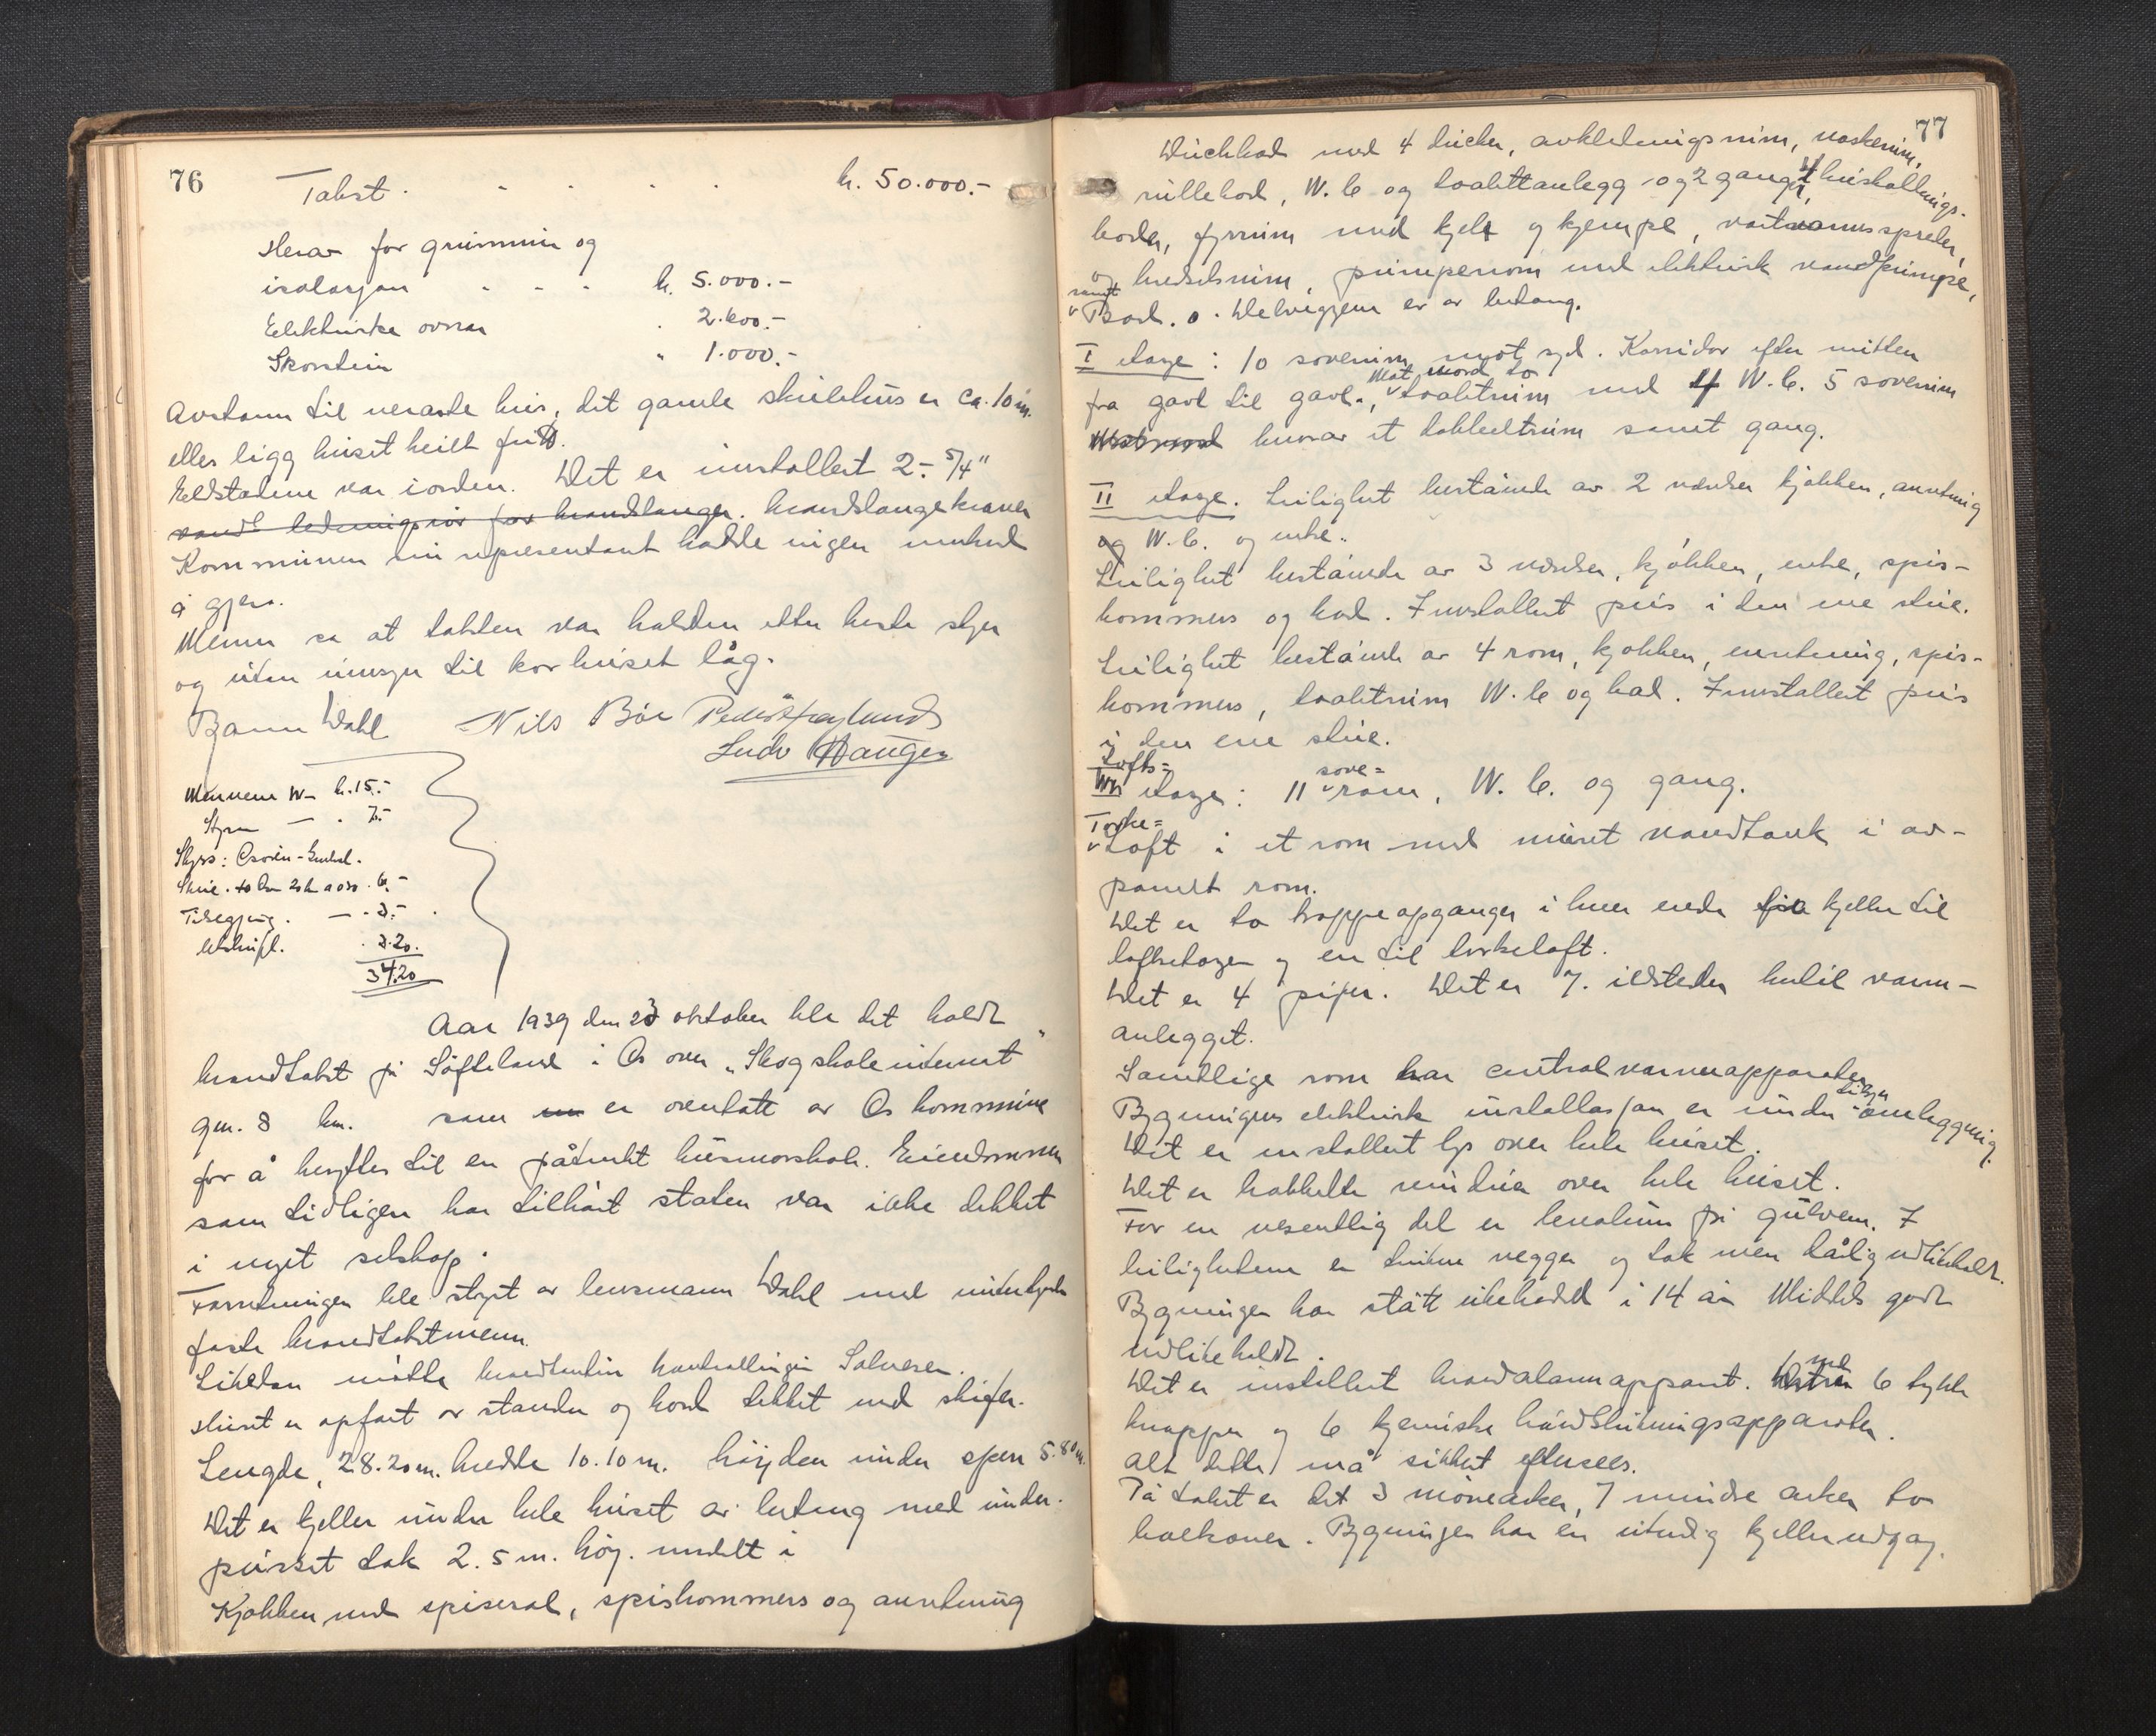 76
Takst . . . . . kr. 50.000.-
Herav for grunnmur og
isolasjon - - - kr. 5.000.-
Elektriske ovnar . 2.600.-
Skorstein " 1.000.-
Avstann til næraste hus, det gamle skulehus er ca. 10 m.
elles ligg huset heilt fritt.
Eldstadene var i orden. Det er innstallert 2 - 5/4"
vandt ledningsrör for brandslanger. brandslangekraner
Kommunen sin representant hadde ingen merknad
å gjera.
Menn sa at taksten var halden etter beste skjøn
og uten innsyn til kor huset låg.
Bjarne Dahl Nils Bøe Peder Haglund
Ludv Haugen
Mennene IV - kr. 15.-
Styra — . 7.-
Skyss: Osøren -
Skule. to km 20 k a 030 . 6.-
Tilsegjing. — . 3.-
Utskrift. . 3.20.
34.20
Aar 1939 den 23 oktober ble det holdt
brandtakst på Søfteland i Os over „Skogskoleinternat"
gnr. 8 bnr. som er overtatt av Os kommune
for å benyttes til en påtenkt husmorskole. Eiendommen
som tidligere har tilhört staten var ikke dekket
i noget selskap.
Forretningen ble styrt av lensmann Dahl med undertegnede
faste brandtakstmenn.
Likeledan møtte brannteknisk kontrollingen Salvesen.
Huset er opført av stander og bord dekket med skifer.
Lengde, 28.20 m. bredde 10.10 m. höyden under spen 5.80 m.
Det er kjeller under hele huset av betong med under-
pusset tak 2.5 m. höy. inndelt i
Kjökken med spisesal, spiskommers og anretning
77
Duchbad med 4 ducher, avkledningsrum, vaskerum,
rullebod, W.C og toalettanlegg og 2 ganger, 4 husholdnings-
boder, fyrrum med kjele og kjempe, vartvannsspreder,
og bredselsrum, pumperom med elektrisk vandpumpe,
samt Bad. Delveggene er av betong.
I etage: 10 soverum mot syd. Korridor efter midten
fra gavl til gavl., Mot nord to toalettrum med 4 W.C. 5 soverum
Mot nord hvorav et dobbeltrum samt gang.
II etage. Leilighet bestående av 2 værelser kjökken, anretning
og W.C. og entre.
Leilighet bestående av 3 værelser, kjökken, entre, spis-
kommers og bad. Innstallert peis i den ene stue.
Leilighet bestående av 4 rom, kjökken, anretning, spis-
kommers, toalettrum W.C og bad. Innstallert peis
i den ene stue.
Lofts= etage: 11 sove= rom, W.C. og gang.
Tørke= Loft i et rom med muret vandtank i av-
panelt rom.
Det er to trappeopganger i hver ende fra kjeller til
loftsetagen og en til tørkeloft.
Det er 4 piper. Det er 7. ildsteder hertil varm-
anlegget.
Samtlige rom har centralvarmeapparater
Bygningens elektrisk installasjon er under tilsyn omleggning.
Det er installert lys over hele huset.
Det er dobbelte vinduer over hele huset.
For en vesentlig del er lenoleum på gulvene. I
leiligheterne er trukne vegger og tak men dårlig vedlikehold.
Bygningen har stått ubebodd i 14 år Middels godt
vedlikeholdt.
Det er installert brandalarmapparat. med 6 trykk
knapper og 6 kjemiske håndslukningsapparater.
Alt dette må sikkert eftersees.
På taket er det 3 mönearker, 7 mindre arker to
balkoner. Bygningen har en utvendig kjellerudgang.